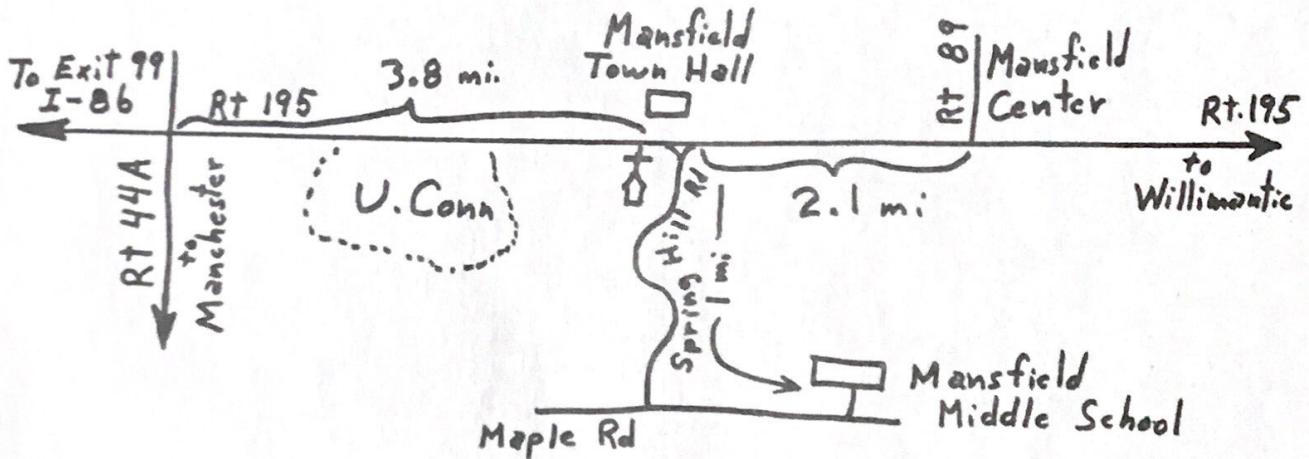 To Exit 99
I-86
Rt 195
3.8 mi.
Mansfield
Town Hall
Rt 89
Mansfield
Center
Rt. 195
to
Willimantic
Rt 44A
to
Manchester
U. Conn
Spring Hill Rd
1 mi
2.1 mi
Mansfield
Middle School
Maple Rd